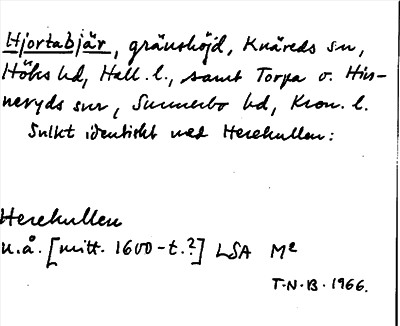 Hjortabjär, gränshöjd, Knäreds sn,
Höks hd, Hall. l., samt Torpa o. Hin-
neryds snr, Sunnerbo hd, Kron. l.
Snikt identiskt med Herekullen:
Herekullen
u.å. [mitt. 1600-t.?] LSA M²
T.N.B. 1966.